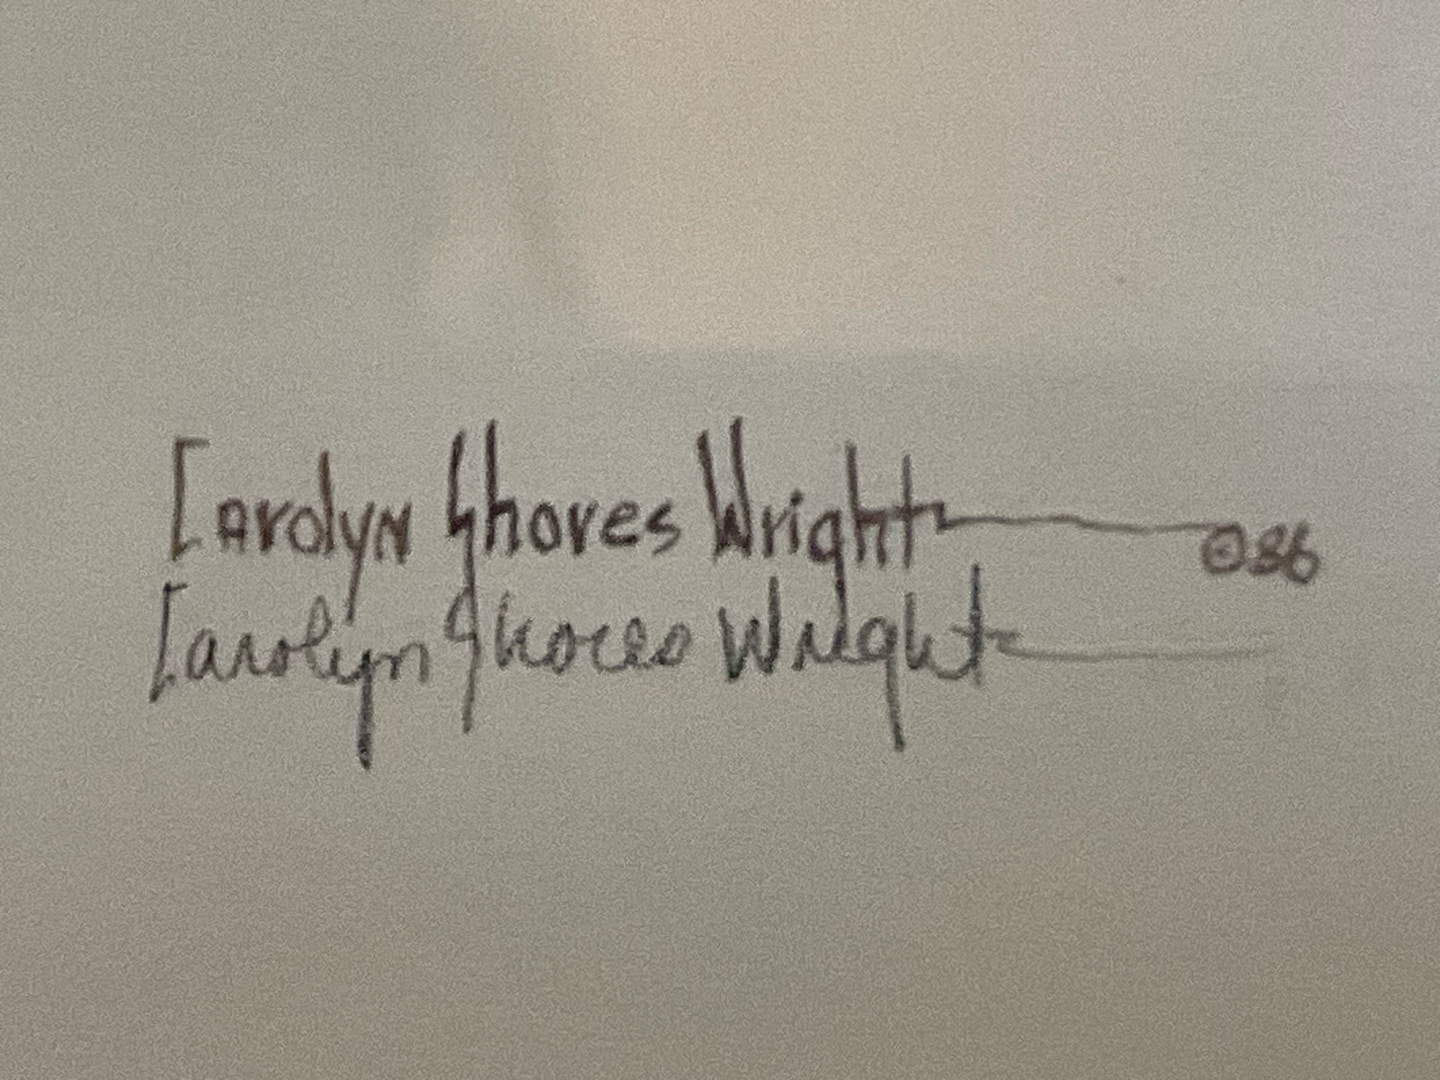 Carolyn Shores Wright ©86
Carolyn Shores Wright